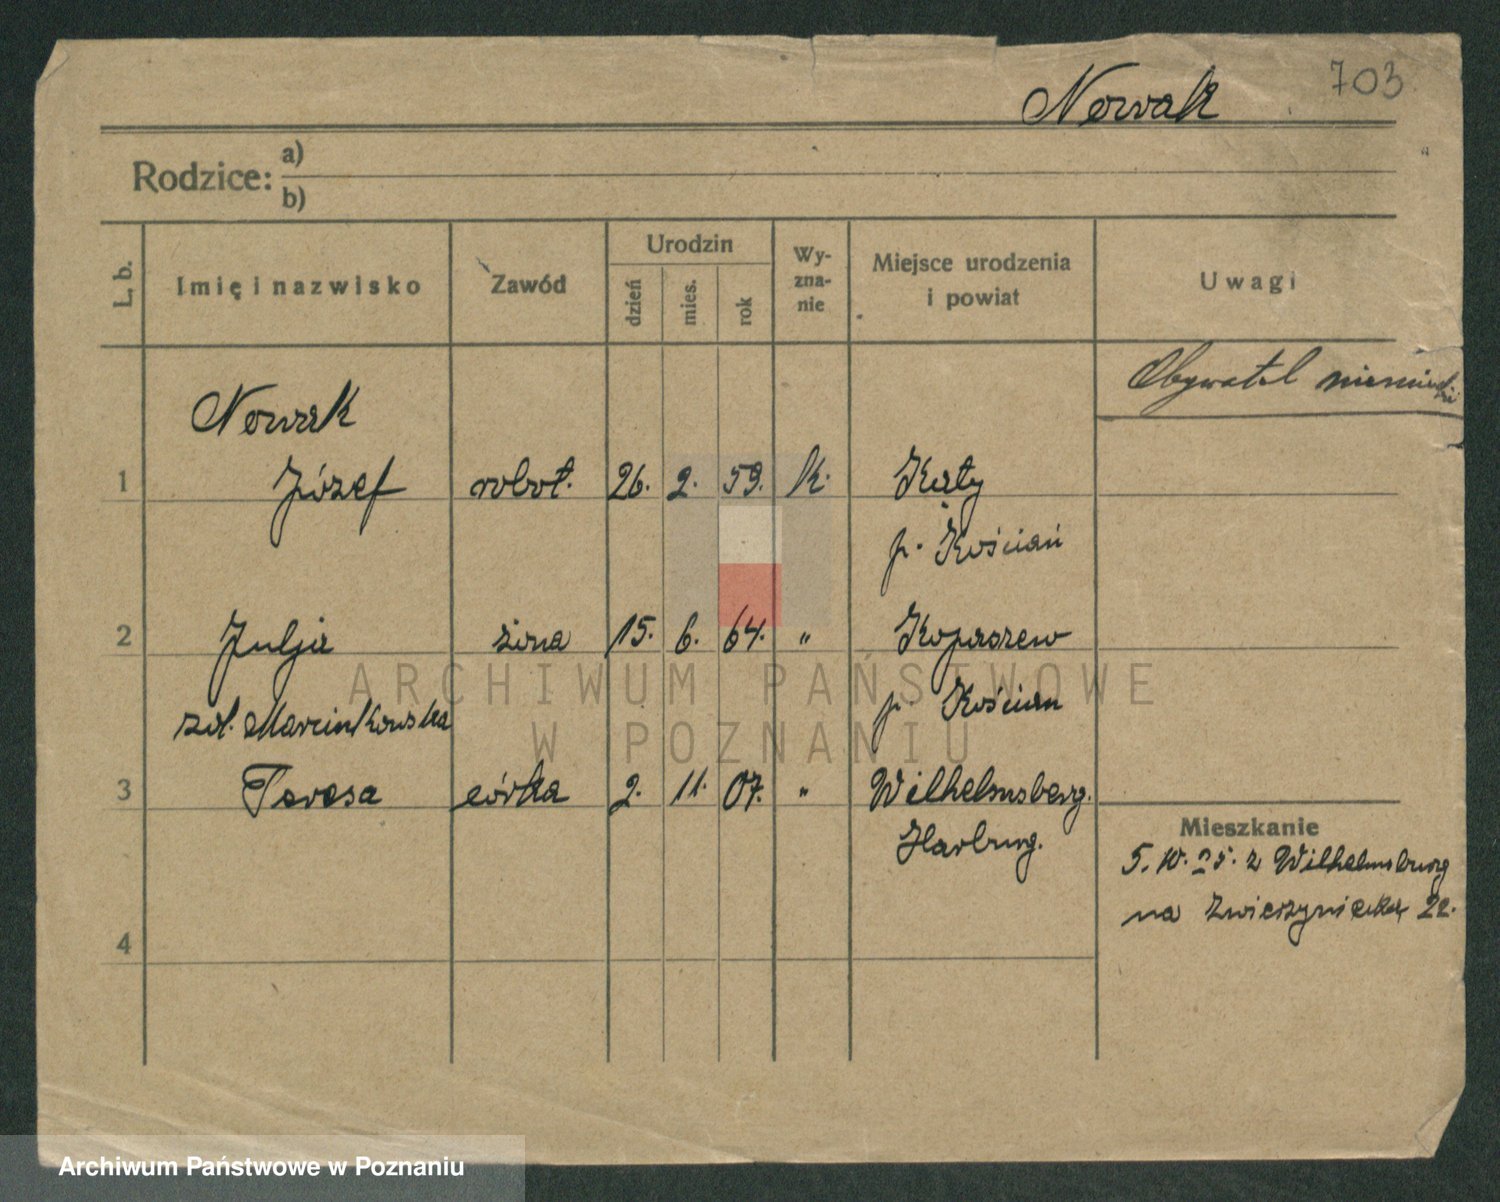 Nowak 703
Rodzice: a)
b)
L. b. Imię i nazwisko Zawód Urodzin dzień mies. rok Wy-zna-nie Miejsce urodzenia i powiat Uwagi
Obywatel niemiecki
Nowak
1 Józef robot. 26. 2. 59. k. Kąty
p. Kościań
2 Julja żona 15. 6. 64. " Kopaszew
zd. Marcinkowska p. Kościan
3 Teresa córka 2. 11. 07. " Wilhelmsberg.
Harburg.
Mieszkanie
5. 10. 25. z Wilhelmsburg
na Zwierzyniecka 22.
4
ARCHIWUM PAŃSTWOWE
W POZNANIU
Archiwum Państwowe w Poznaniu